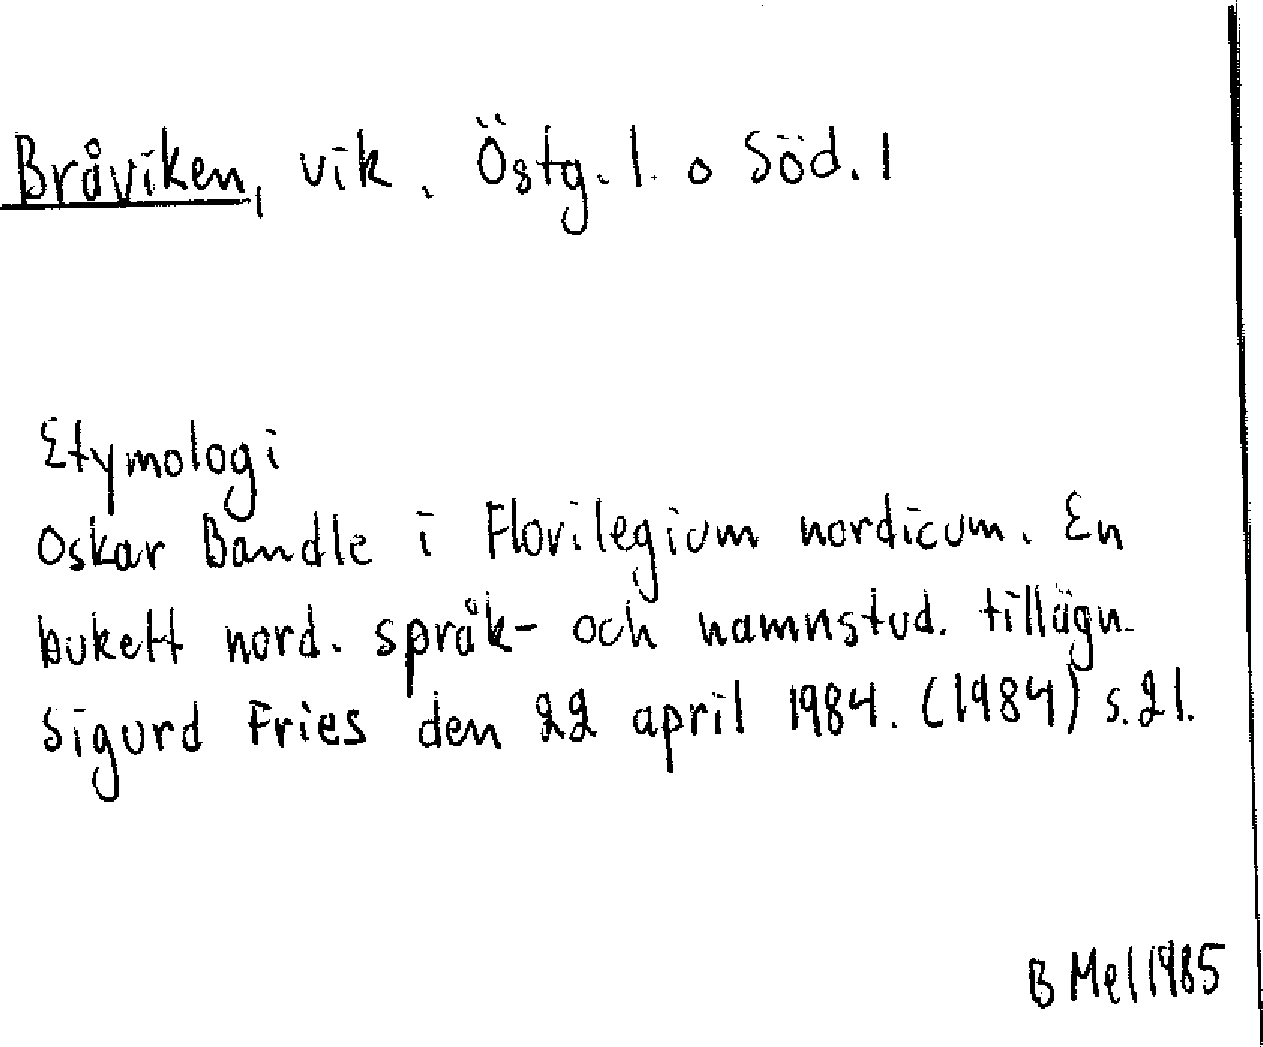 Bråviken, vik. Östg. l. o Söd. l
Etymologi
Oskar Bandle i Florilegium nordicum. En
bukett nord. språk- och namnstud. tillägn.
Sigurd Fries den 22 april 1984. (1984) s. 21.
B Mel 1985